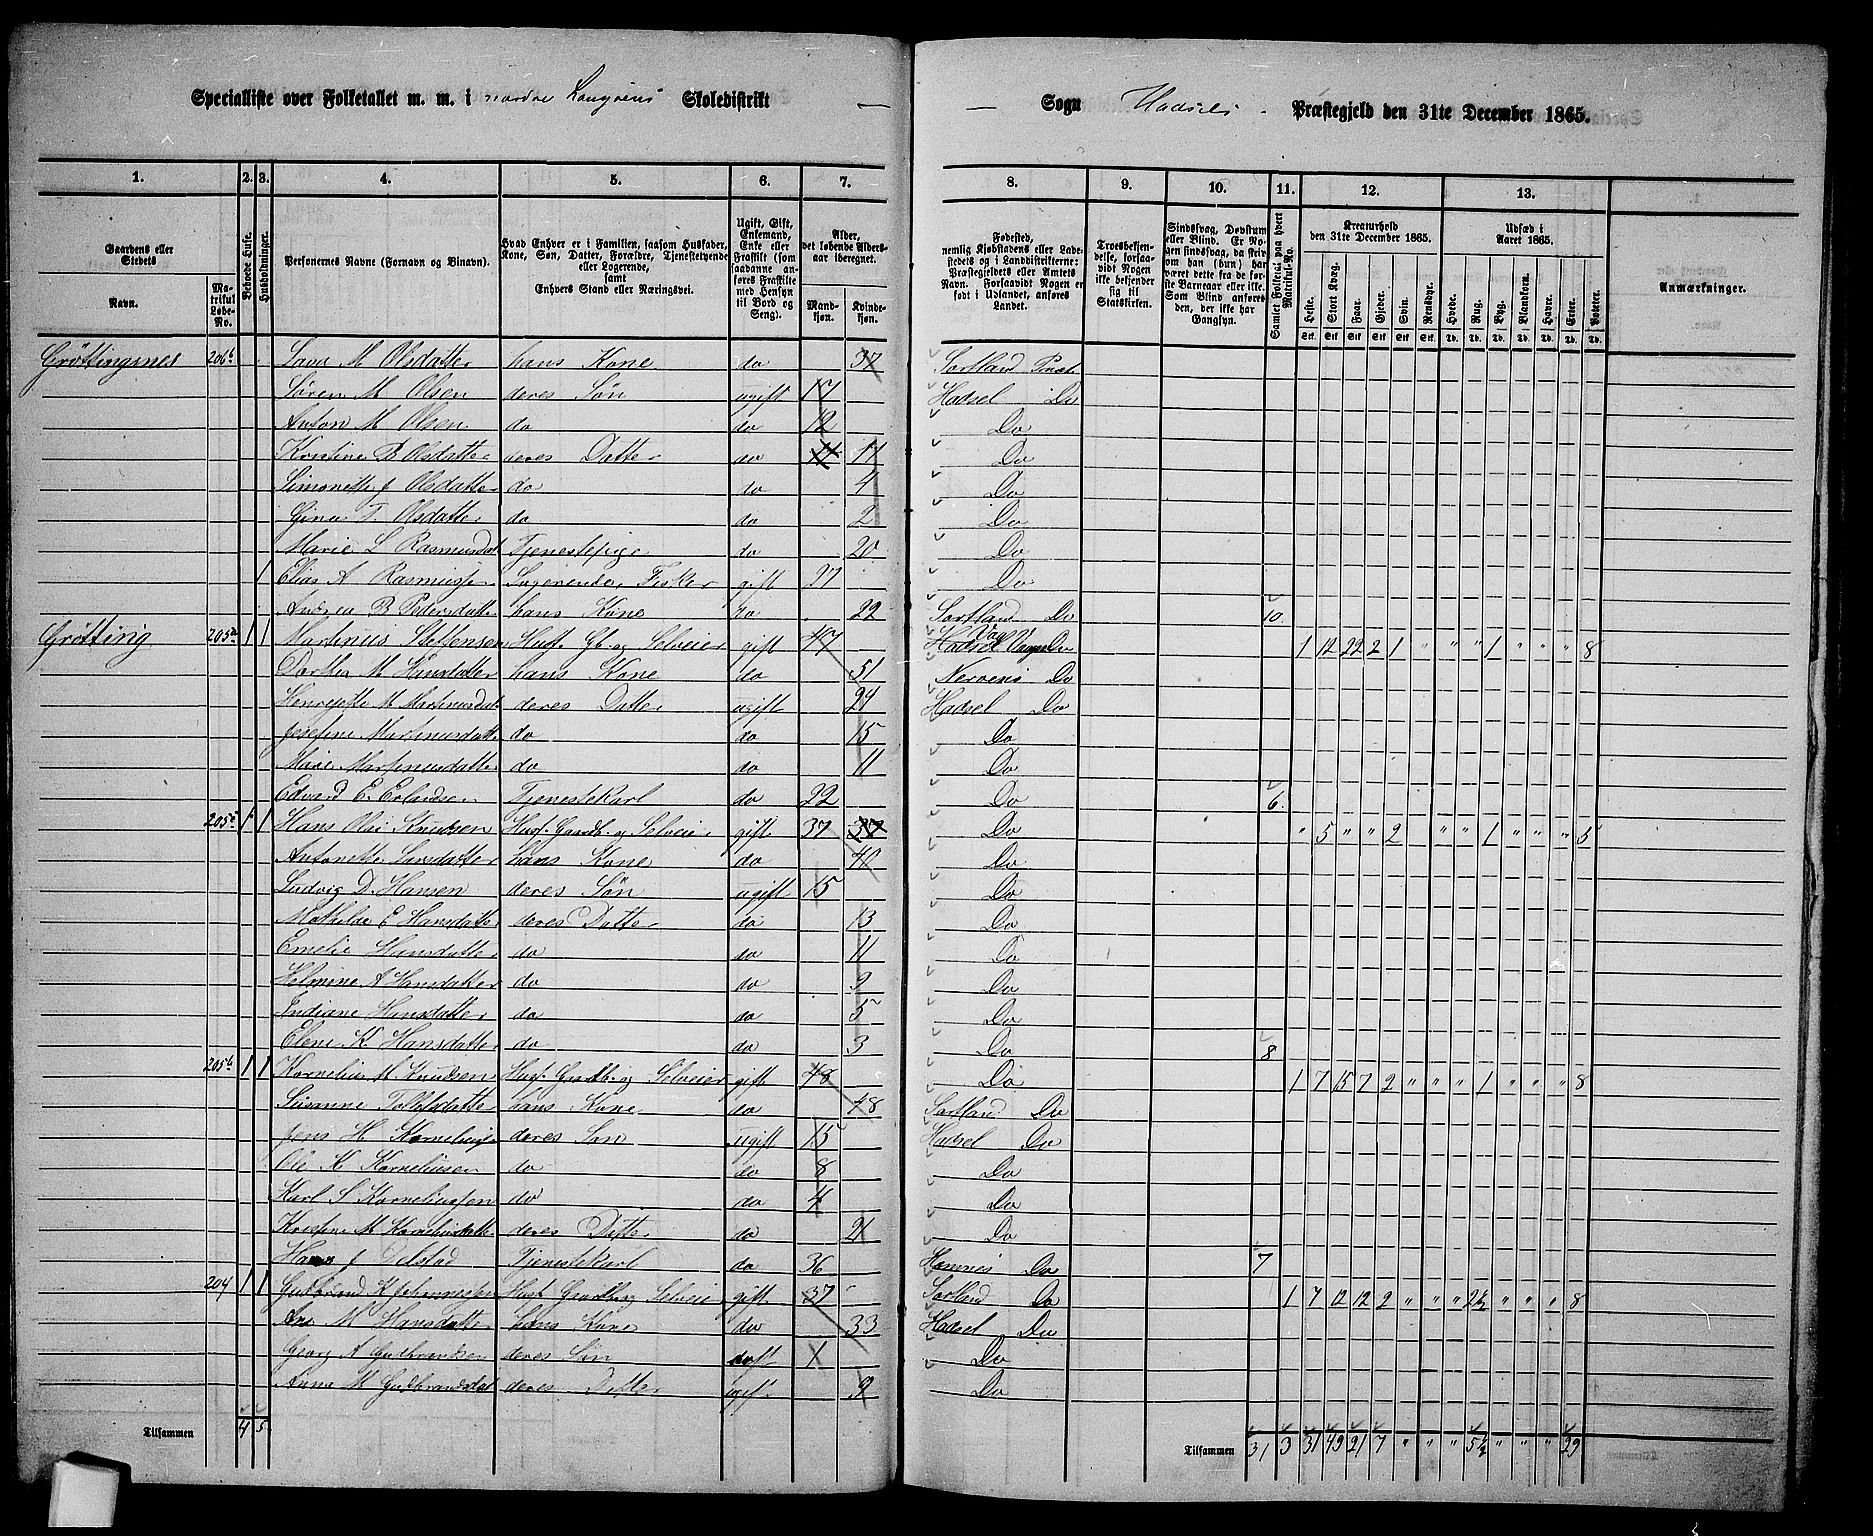 Specialliste over Folketallet m. m. i nordre Langøens Skoledistrikt — — Sogn Hadsels Præstegjeld den 31te December 1865.
1. 2. 3. 4. 5. 6. 7. 8. 9. 10. 11. 12. 13.
Gaardens eller Stedets Navn. Matrikul Løbe-No.
Beboede Huse.
Husholdninger.
Personernes Navne (Fornavn og Binavn).
Hvad Enhver er i Familien, saasom Husfader, Kone, Søn, Datter, Forældre, Tjenestetyende eller Logerende, samt Enhvers Stand eller Næringsvei.
Ugift, Gift, Enkemand, Enke eller Fraskilt (som saadanne anføres Fraskilte med Hensyn til Bord og Seng).
Alder, det løbende Alders-aar iberegnet. Mandkjøn. Kvindekjøn.
Fødested,
Kreaturhold den 31te December 1865.
Udsæd i Aaret 1865.
Anmærkninger.
Heste. Stort Kvæg. Faar. Gjeder. Svin. Rensdyr. Hvede. Rug. Byg. Blandkorn. Havre. Erter. Poteter.
Grøttingnes 206b M Olsdatter hans Kone do 37 Sortland Præst
Søren M Olsen deres Søn ugift 17 Hadsel Do
Anton M Olsen do do 12 Do
Kristine B Olsdatter deres Datter do 11 Do
Simonette J Olsdatter do do 4 Do
Gina T. Olsdatter do do 2 Do
Marie L Rasmusdat Tjenestepige do 20 Do
1 Elias A Rasmussen Logerende, Fisker gift 27 Do
Andrea B Pedersdatter hans Kone do 22 Sortland Do 10.
Grøtting 205a 1 1 Martinus Steffensen Husf. Gb. og Selveier gift 47 Do 1 12 22 2 1 " " " 1 " " " 8
Dorthea M Hansdatter hans Kone do 51 Do
M Martinusdat deres Datter ugift 24 Hadsel Do
Josefine Martinusdatter do do 15 Do
Marie Martinusdatter do do 11 Do
Edvard E. Erlandsen Tjenestekarl do 22 Do 6.
1 1 Hans Olai Knudsen Husf. Gaardb. og Selveier gift 37 Do " 5 " " 2 " " 1 " " " 5
Antonette Larsdatter hans Kone do 40 Do
Ludvig D. Hansen deres Søn ugift 15 Do
Mathilde E Hansdatter deres Datter do 13 Do
Emelie Hansdatter do do 11 Do
Helmine A Hansdatter do do 9 Do
Indiane Hansdatter do do 5 Do
Elene K. Hansdatter do do 3 Do 8
205b 1 1 Kornelius M Knudsen Husf. Gaardb. og Selveier gift 48 Do 1 7 15 7 2 " " " 1 " " " 8
Susanne Tollefsdatter hans Kone do 48 Sortland Do
Jens H Korneliussen deres Søn ugift 15 Hadsel Do
Ole K Korneliussen do do 8 Do
Karl S Korneliussen do do 4 Do
M Korneliusdatter deres Datter do 21 Do
Hans J Tjenestekarl do 36 Hemnes Do 7
204 1 1 Gudbrand K Johannessen Husf. Gaardb. og Selveier gift 37 Sortland Do 1 7 12 12 2 " " " 2½ " " " 8
Ane M Hansdatter hans Kone do 33 Hadsel Do
Georg A Gudbrandsen deres Søn 1 Do
Anne M Gudbrandsdat deres Datter ugift 9 Do
Tilsammen 4 5
Tilsammen 31 3 31 49 21 7 " " " 5½ " " " 29